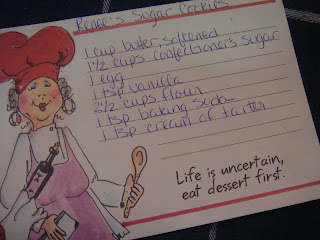 Renee's Sugar Cookies
1 cup butter, softened
1 1/2 cups confectioner's sugar
1 egg
1 tsp vanilla
2 1/2 cups flour
1 tsp baking soda
1 tsp cream of tarter
Life is uncertain,
eat dessert first.